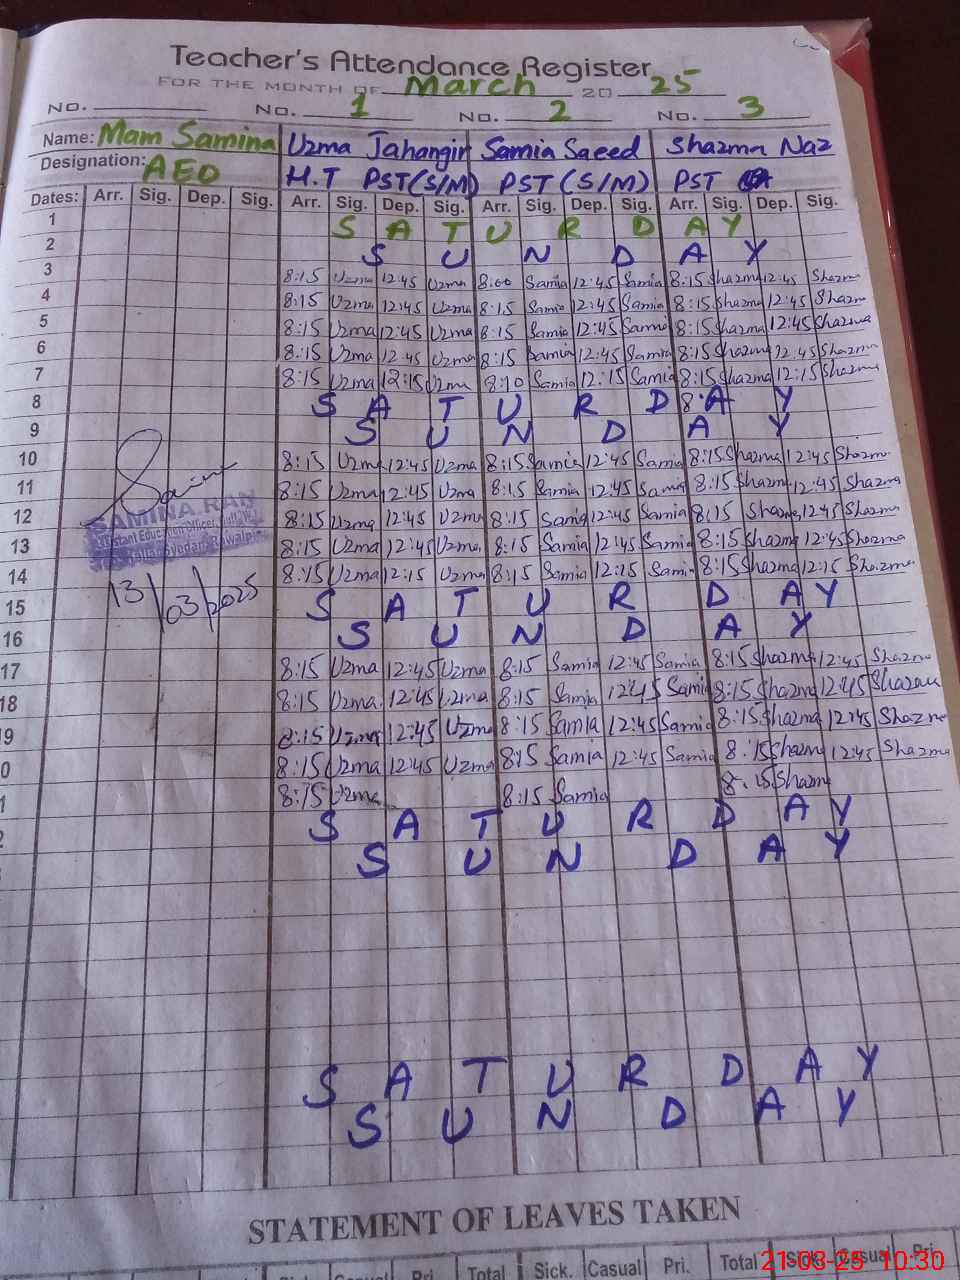 Teacher's Attendance Register
FOR THE MONTH OF March 20 25
No. No. 1 No. 2 No. 3
Name: Mam Samina Uzma Jahangir Samia Saeed Shazma Naz
Designation: AEO H.T PST(S/M) PST (S/M) PST
Dates: Arr. Sig. Dep. Sig. Arr. Sig. Dep. Sig. Arr. Sig. Dep. Sig. Arr. Sig. Dep. Sig.
1 S A T U R D A Y
2 S U N D A Y
3 8:15 Uzma 12:45 Uzma 8:00 Samia 12:45 Samia 8:15 Shazma 12:45 Shazma
4 8:15 Uzma 12:45 Uzma 8:15 Samia 12:45 Samia 8:15 Shazma 12:45 Shazma
5 8:15 Uzma 12:45 Uzma 8:15 Samia 12:45 Samia 8:15 Shazma 12:45 Shazma
6 8:15 Uzma 12:45 Uzma 8:15 Samia 12:45 Samia 8:15 Shazma 12:45 Shazma
7 8:15 Uzma 12:15 Uzma 8:10 Samia 12:15 Samia 8:15 Shazma 12:15 Shazma
8 S A T U R D A Y
9 S U N D A Y
10 8:15 Uzma 12:45 Uzma 8:15 Samia 12:45 Samia 8:15 Shazma 12:45 Shazma
11 8:15 Uzma 12:45 Uzma 8:15 Samia 12:45 Samia 8:15 Shazma 12:45 Shazma
12 8:15 Uzma 12:45 Uzma 8:15 Samia 12:45 Samia 8:15 Shazma 12:45 Shazma
13 8:15 Uzma 12:45 Uzma 8:15 Samia 12:45 Samia 8:15 Shazma 12:45 Shazma
14 8:15 Uzma 12:15 Uzma 8:15 Samia 12:15 Samia 8:15 Shazma 12:15 Shazma
SAMINA
Education Officer
Syedan Rawalpi
13/03/2025
15 S A T U R D A Y
16 S U N D A Y
17 8:15 Uzma 12:45 Uzma 8:15 Samia 12:45 Samia 8:15 Shazma 12:45 Shazma
18 8:15 Uzma 12:45 Uzma 8:15 Samia 12:45 Samia 8:15 Shazma 12:45 Shazma
19 8:15 Uzma 12:45 Uzma 8:15 Samia 12:45 Samia 8:15 Shazma 12:45 Shazma
0 8:15 Uzma 12:45 Uzma 8:15 Samia 12:45 Samia 8:15 Shazma 12:45 Shazma
1 8:15 Uzma 8:15 Samia 8:15 Shazma
2 S A T U R D A Y
S U N D A Y
S A T U R D A Y
S U N D A Y
STATEMENT OF LEAVES TAKEN
Sick. Casual Pri. Total Sick. Casual Pri. Total Sick. Casual Pri.
21-03-25 10:30